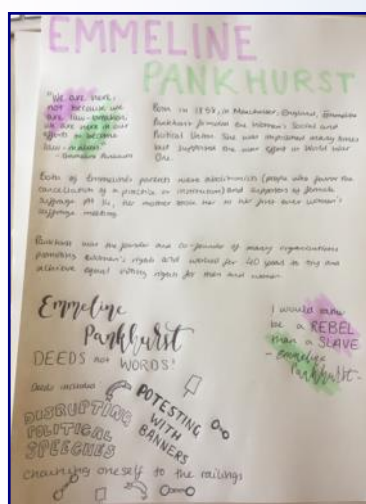 EMMELINE
PANKHURST
"We are here,
not because we
are law-breakers;
we are here in our
efforts to become
law-makers."
- Emmeline Pankhurst
Born in 1858, in Manchester, England, Emmeline
Pankhurst founded the Women's Social and
Political Union. She was imprisoned many times
but supported the war effort in World War
One.
Both of Emmeline's parents were abolitionists (people who favor the
cancellation of a practice or institution) and supporters of female
suffrage. At 14, her mother took her to her first ever women's
suffrage meeting.
Pankhurst was the founder and co-founder of many organisations
promoting women's rights and worked for 40 years to try and
achieve equal voting rights for men and women.
Emmeline
Pankhurst
DEEDS not WORDS!
I would rather
be a REBEL
than a SLAVE
- Emmeline
Pankhurst -
Deeds included
DISRUPTING
POLITICAL
SPEECHES
POTESTING
WITH
BANNERS
chaining oneself to the railings